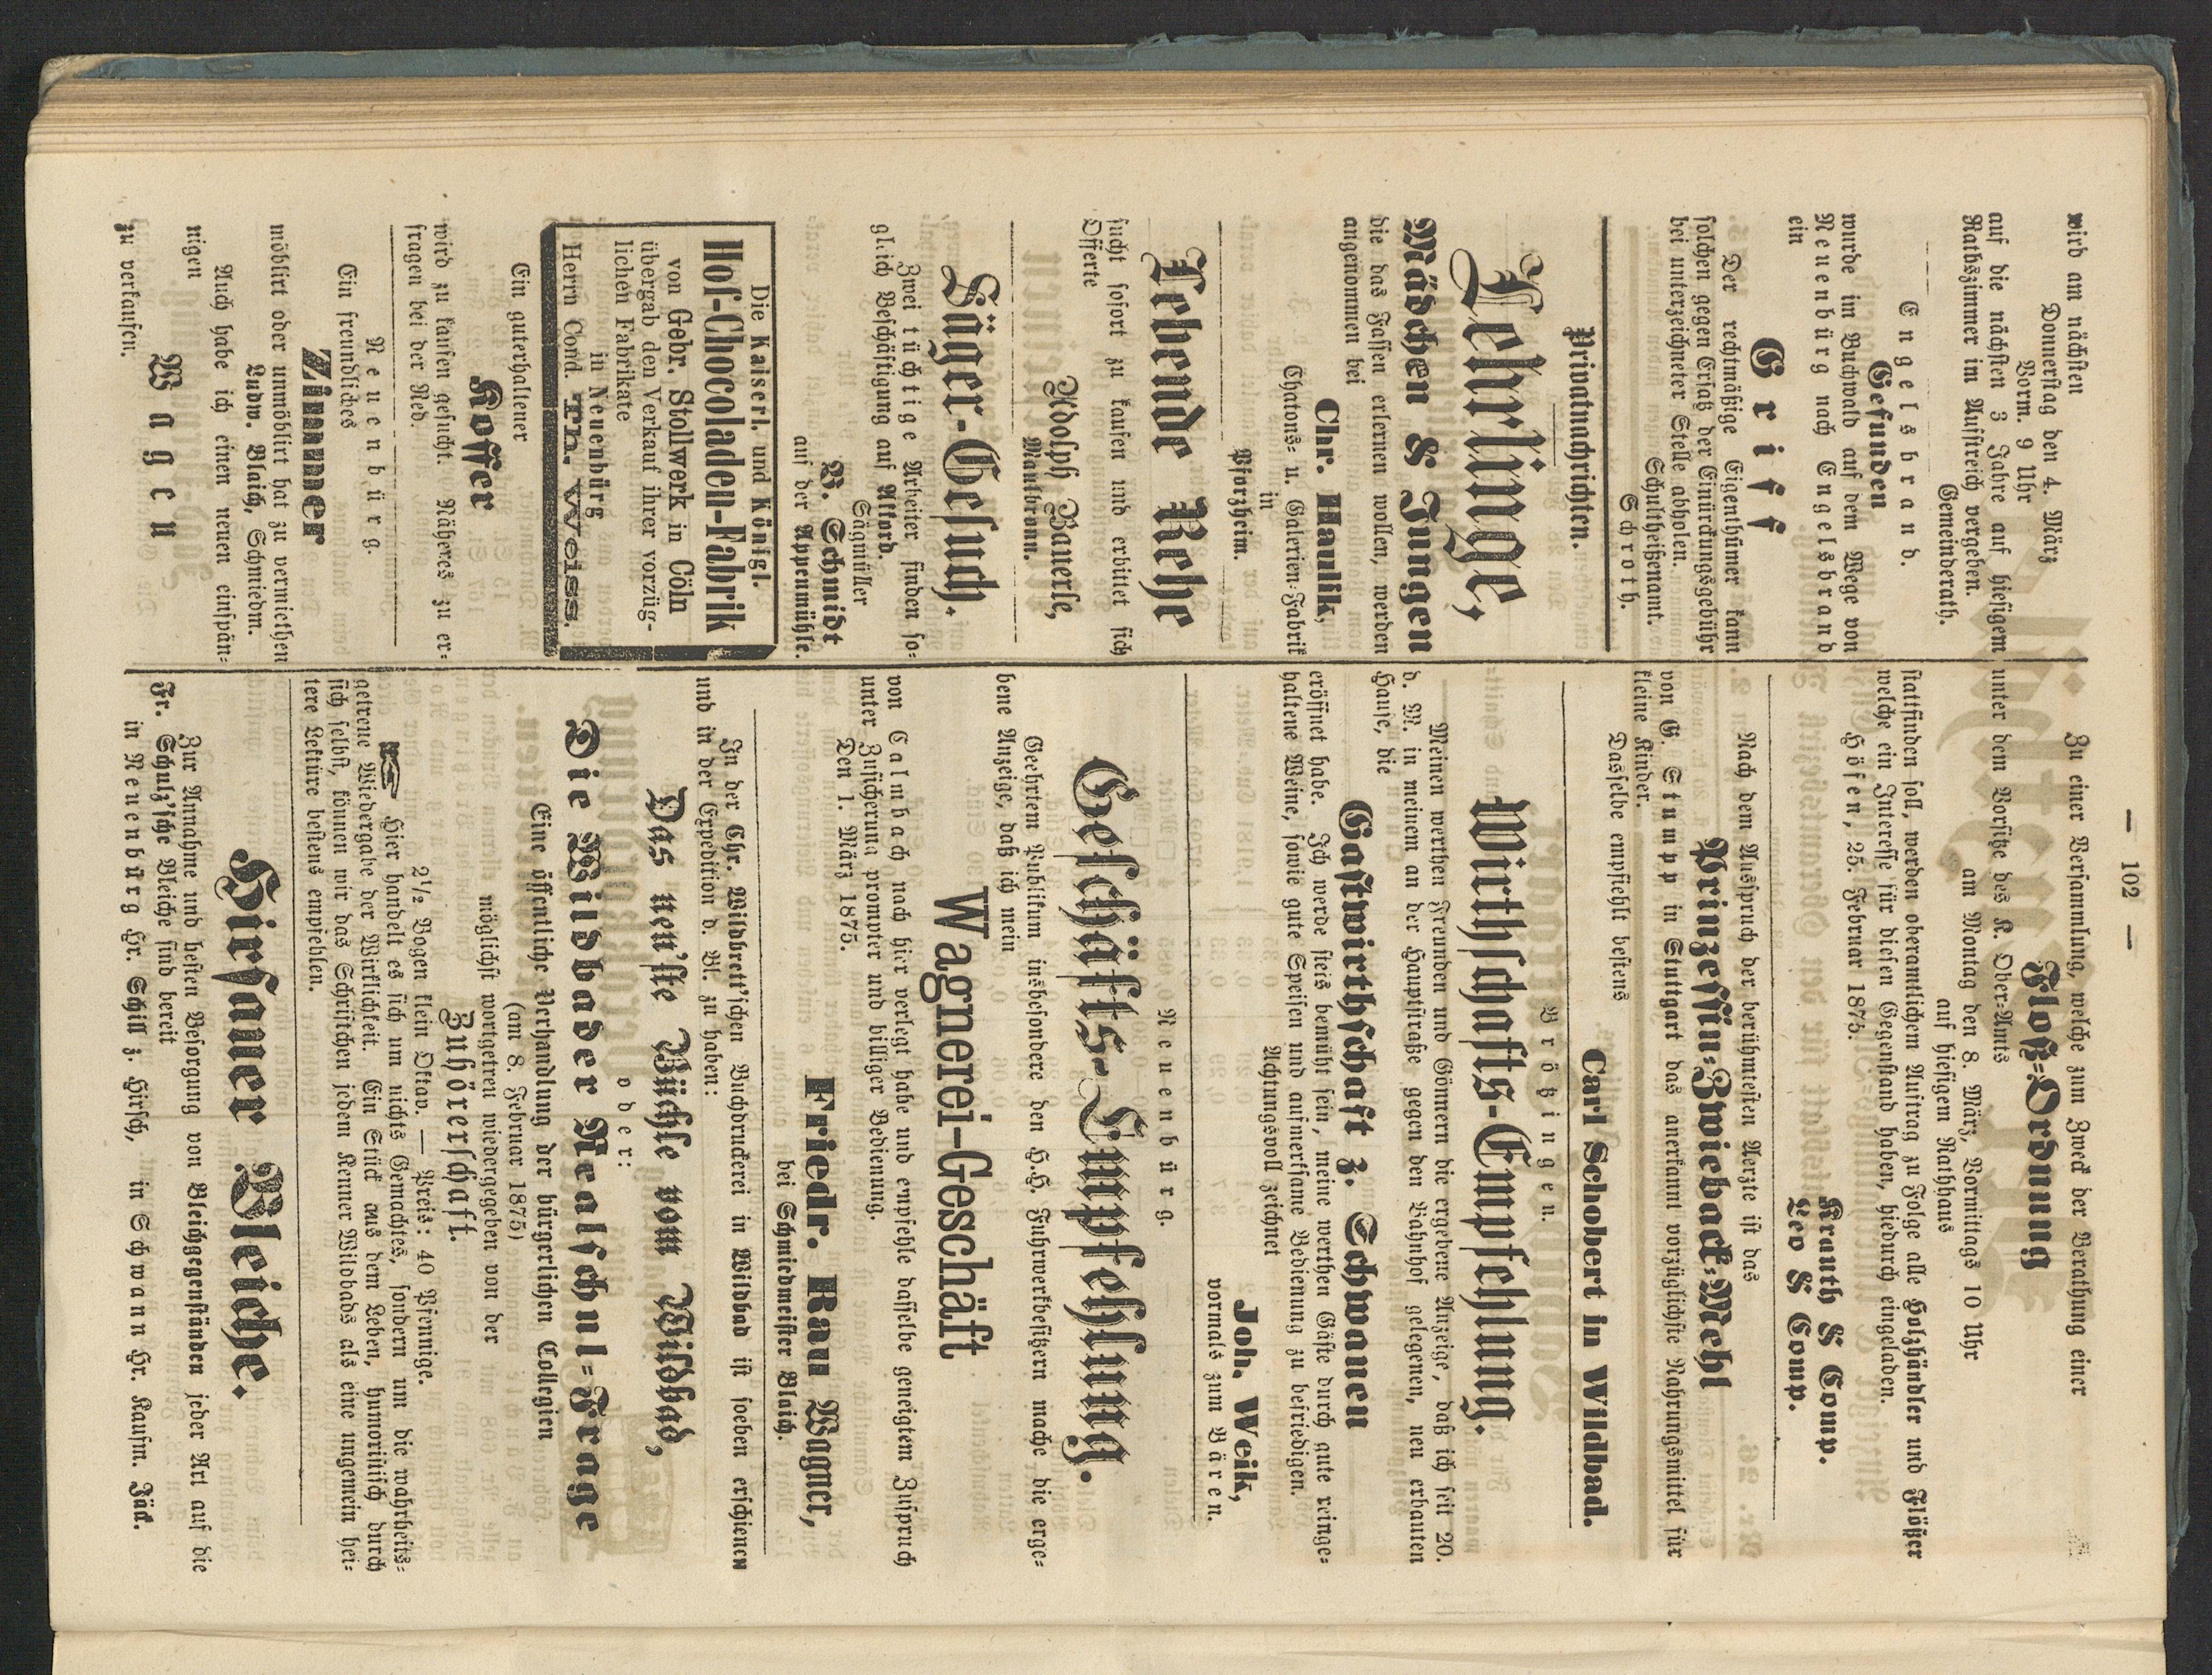 — 102 —
wird am nächsten
Donnerstag den 4. März
Vorm. 9 Uhr
auf die nächsten 3 Jahre auf hiesigem
Rathszimmer im Aufstreich vergeben.
Gemeinderath.
Engelsbrand.
Gefunden
wurde im Buchwald auf dem Wege von
Neuenbürg nach Engelsbrand
ein
Griff
Der rechtmäßige Eigenthümer kann
solchen gegen Ersatz der Einrückungsgebühr
bei unterzeichneter Stelle abholen.
Schultheißenamt.
Schroth.
Privatnachrichten.
Lehrlinge,
Mädchen & Jungen
die das Fassen erlernen wollen, werden
angenommen bei
Chr. Haulik,
Chatons- u. Galerien-Fabrik
in
Pforzheim.
Lebende Rehe
sucht sofort zu kaufen und erbittet sich
Offerte
Adolph Bauerle,
Maulbronn.
Säger-Gesuch.
Zwei tüchtige Arbeiter finden so-
gleich Beschäftigung auf Akkord.
Sägmüller
B. Schmidt
auf der Appenmühle.
Die Kaiserl. und Königl.
Hof-Chocoladen-Fabrik
von Gebr. Stollwerk in Cöln
übergab den Verkauf ihrer vorzüg-
lichen Fabrikate
in Neuenbürg
Herrn Cond. Th. Weiss.
Ein guterhaltener
Koffer
wird zu kaufen gesucht. Näheres zu er-
fragen bei der Red.
Neuenbürg.
Ein freundliches
Zimmer
möblirt oder unmöblirt hat zu vermiethen
Ludw. Blaich, Schmiedm.
Auch habe ich einen neuen einspän-
nigen
Wagen
zu verkaufen.
Zu einer Versammlung, welche zum Zweck der Berathung einer
Floß-Ordnung
unter dem Vorsitze des K. Ober-Amts
am Montag den 8. März, Vormittags 10 Uhr
auf hiesigem Rathhaus
stattfinden soll, werden oberamtlichem Auftrag zu Folge alle Holzhändler und Flößer
welche ein Interesse für diesen Gegenstand haben, hiedurch eingeladen.
Höfen, 25. Februar 1875.
Krauth & Comp.
Leo & Comp.
Nach dem Ausspruch der berühmtesten Aerzte ist das
Prinzessin-Zwieback-Mehl
von G. Stumpp in Stuttgart das anerkannt vorzüglichste Nahrungsmittel für
kleine Kinder.
Dasselbe empfiehlt bestens
Carl Schobert in Wildbad.
Brötzingen.
Wirthschafts-Empfehlung.
Meinen werthen Freunden und Gönnern die ergebene Anzeige, daß ich seit 20.
d. M. in meinem an der Hauptstraße gegen den Bahnhof gelegenen, neu erbauten
Hause, die
Gastwirthschaft z. Schwanen
eröffnet habe. Ich werde stets bemüht sein, meine werthen Gäste durch gute reinge-
haltene Weine, sowie gute Speisen und aufmerksame Bedienung zu befriedigen.
Achtungsvoll zeichnet
Joh. Weik,
vormals zum Bären.
Neuenbürg.
Geschäfts-Empfehlung.
Geehrtem Publikum insbesondere den H.H. Fuhrwerkbesitzern mache die erge-
bene Anzeige, daß ich mein
Wagnerei-Geschäft
von Calmbach nach hier verlegt habe und empfehle dasselbe geneigtem Zuspruch
unter Zusicherung prompter und billiger Bedienung.
Den 1. März 1875.
Friedr. Rau Wagner,
bei Schmiedmeister Blaich.
In der Chr. Wildbrett'schen Buchdruckerei in Wildbad ist soeben erschienen
und in der Expedition d. Bl. zu haben:
Das neu'ste Büchle vom Wildbad,
oder:
Die Wildbader Realschul-Frage
Eine öffentliche Verhandlung der bürgerlichen Collegien
(am 8. Februar 1875)
möglichst wortgetreu wiedergegeben von der
Zuhörerschaft.
2½ Bogen klein Oktav. — Preis: 40 Pfennige.
Hier handelt es sich um nichts Gemachtes, sondern um die wahrheits-
getreue Wiedergabe der Wirklichkeit. Ein Stück aus dem Leben, humoristisch durch
sich selbst, können wir das Schriftchen jedem Kenner Wildbads als eine ungemein hei-
tere Lektüre bestens empfehlen.
Hirsauer Bleiche.
Zur Annahme und besten Besorgung von Bleichgegenständen jeder Art auf die
Fr. Schulz'sche Bleiche sind bereit
in Neuenbürg Hr. Schill z. Hirsch, in Schwann Hr. Kaufm. Jäck.